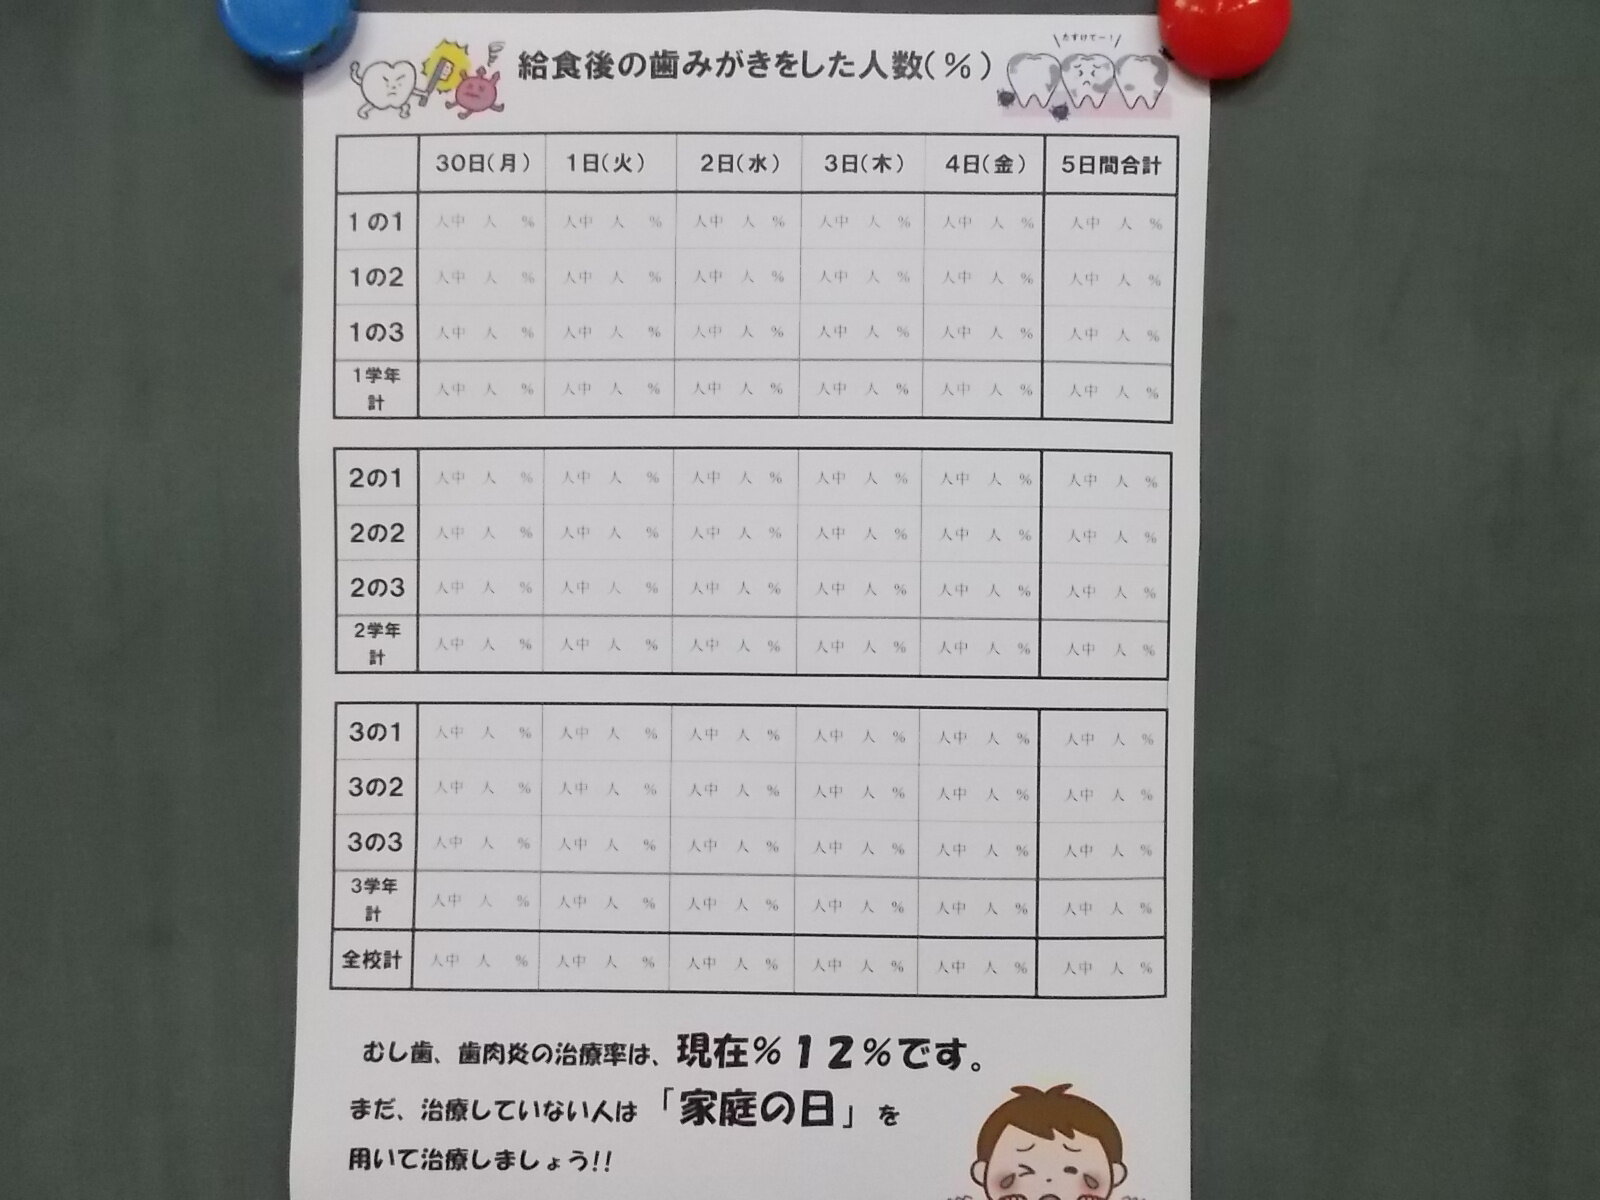 給食後の歯みがきをした人数(%)
たすけてー!
30日(月) 1日(火) 2日(水) 3日(木) 4日(金) 5日間合計
1の1 人中 人 % 人中 人 % 人中 人 % 人中 人 % 人中 人 % 人中 人 %
1の2 人中 人 % 人中 人 % 人中 人 % 人中 人 % 人中 人 % 人中 人 %
1の3 人中 人 % 人中 人 % 人中 人 % 人中 人 % 人中 人 % 人中 人 %
1学年
計 人中 人 % 人中 人 % 人中 人 % 人中 人 % 人中 人 % 人中 人 %
2の1 人中 人 % 人中 人 % 人中 人 % 人中 人 % 人中 人 % 人中 人 %
2の2 人中 人 % 人中 人 % 人中 人 % 人中 人 % 人中 人 % 人中 人 %
2の3 人中 人 % 人中 人 % 人中 人 % 人中 人 % 人中 人 % 人中 人 %
2学年
計 人中 人 % 人中 人 % 人中 人 % 人中 人 % 人中 人 % 人中 人 %
3の1 人中 人 % 人中 人 % 人中 人 % 人中 人 % 人中 人 % 人中 人 %
3の2 人中 人 % 人中 人 % 人中 人 % 人中 人 % 人中 人 % 人中 人 %
3の3 人中 人 % 人中 人 % 人中 人 % 人中 人 % 人中 人 % 人中 人 %
3学年
計 人中 人 % 人中 人 % 人中 人 % 人中 人 % 人中 人 % 人中 人 %
全校計 人中 人 % 人中 人 % 人中 人 % 人中 人 % 人中 人 % 人中 人 %
むし歯、歯肉炎の治療率は、現在%12%です。
まだ、治療していない人は「家庭の日」を
用いて治療しましょう!!